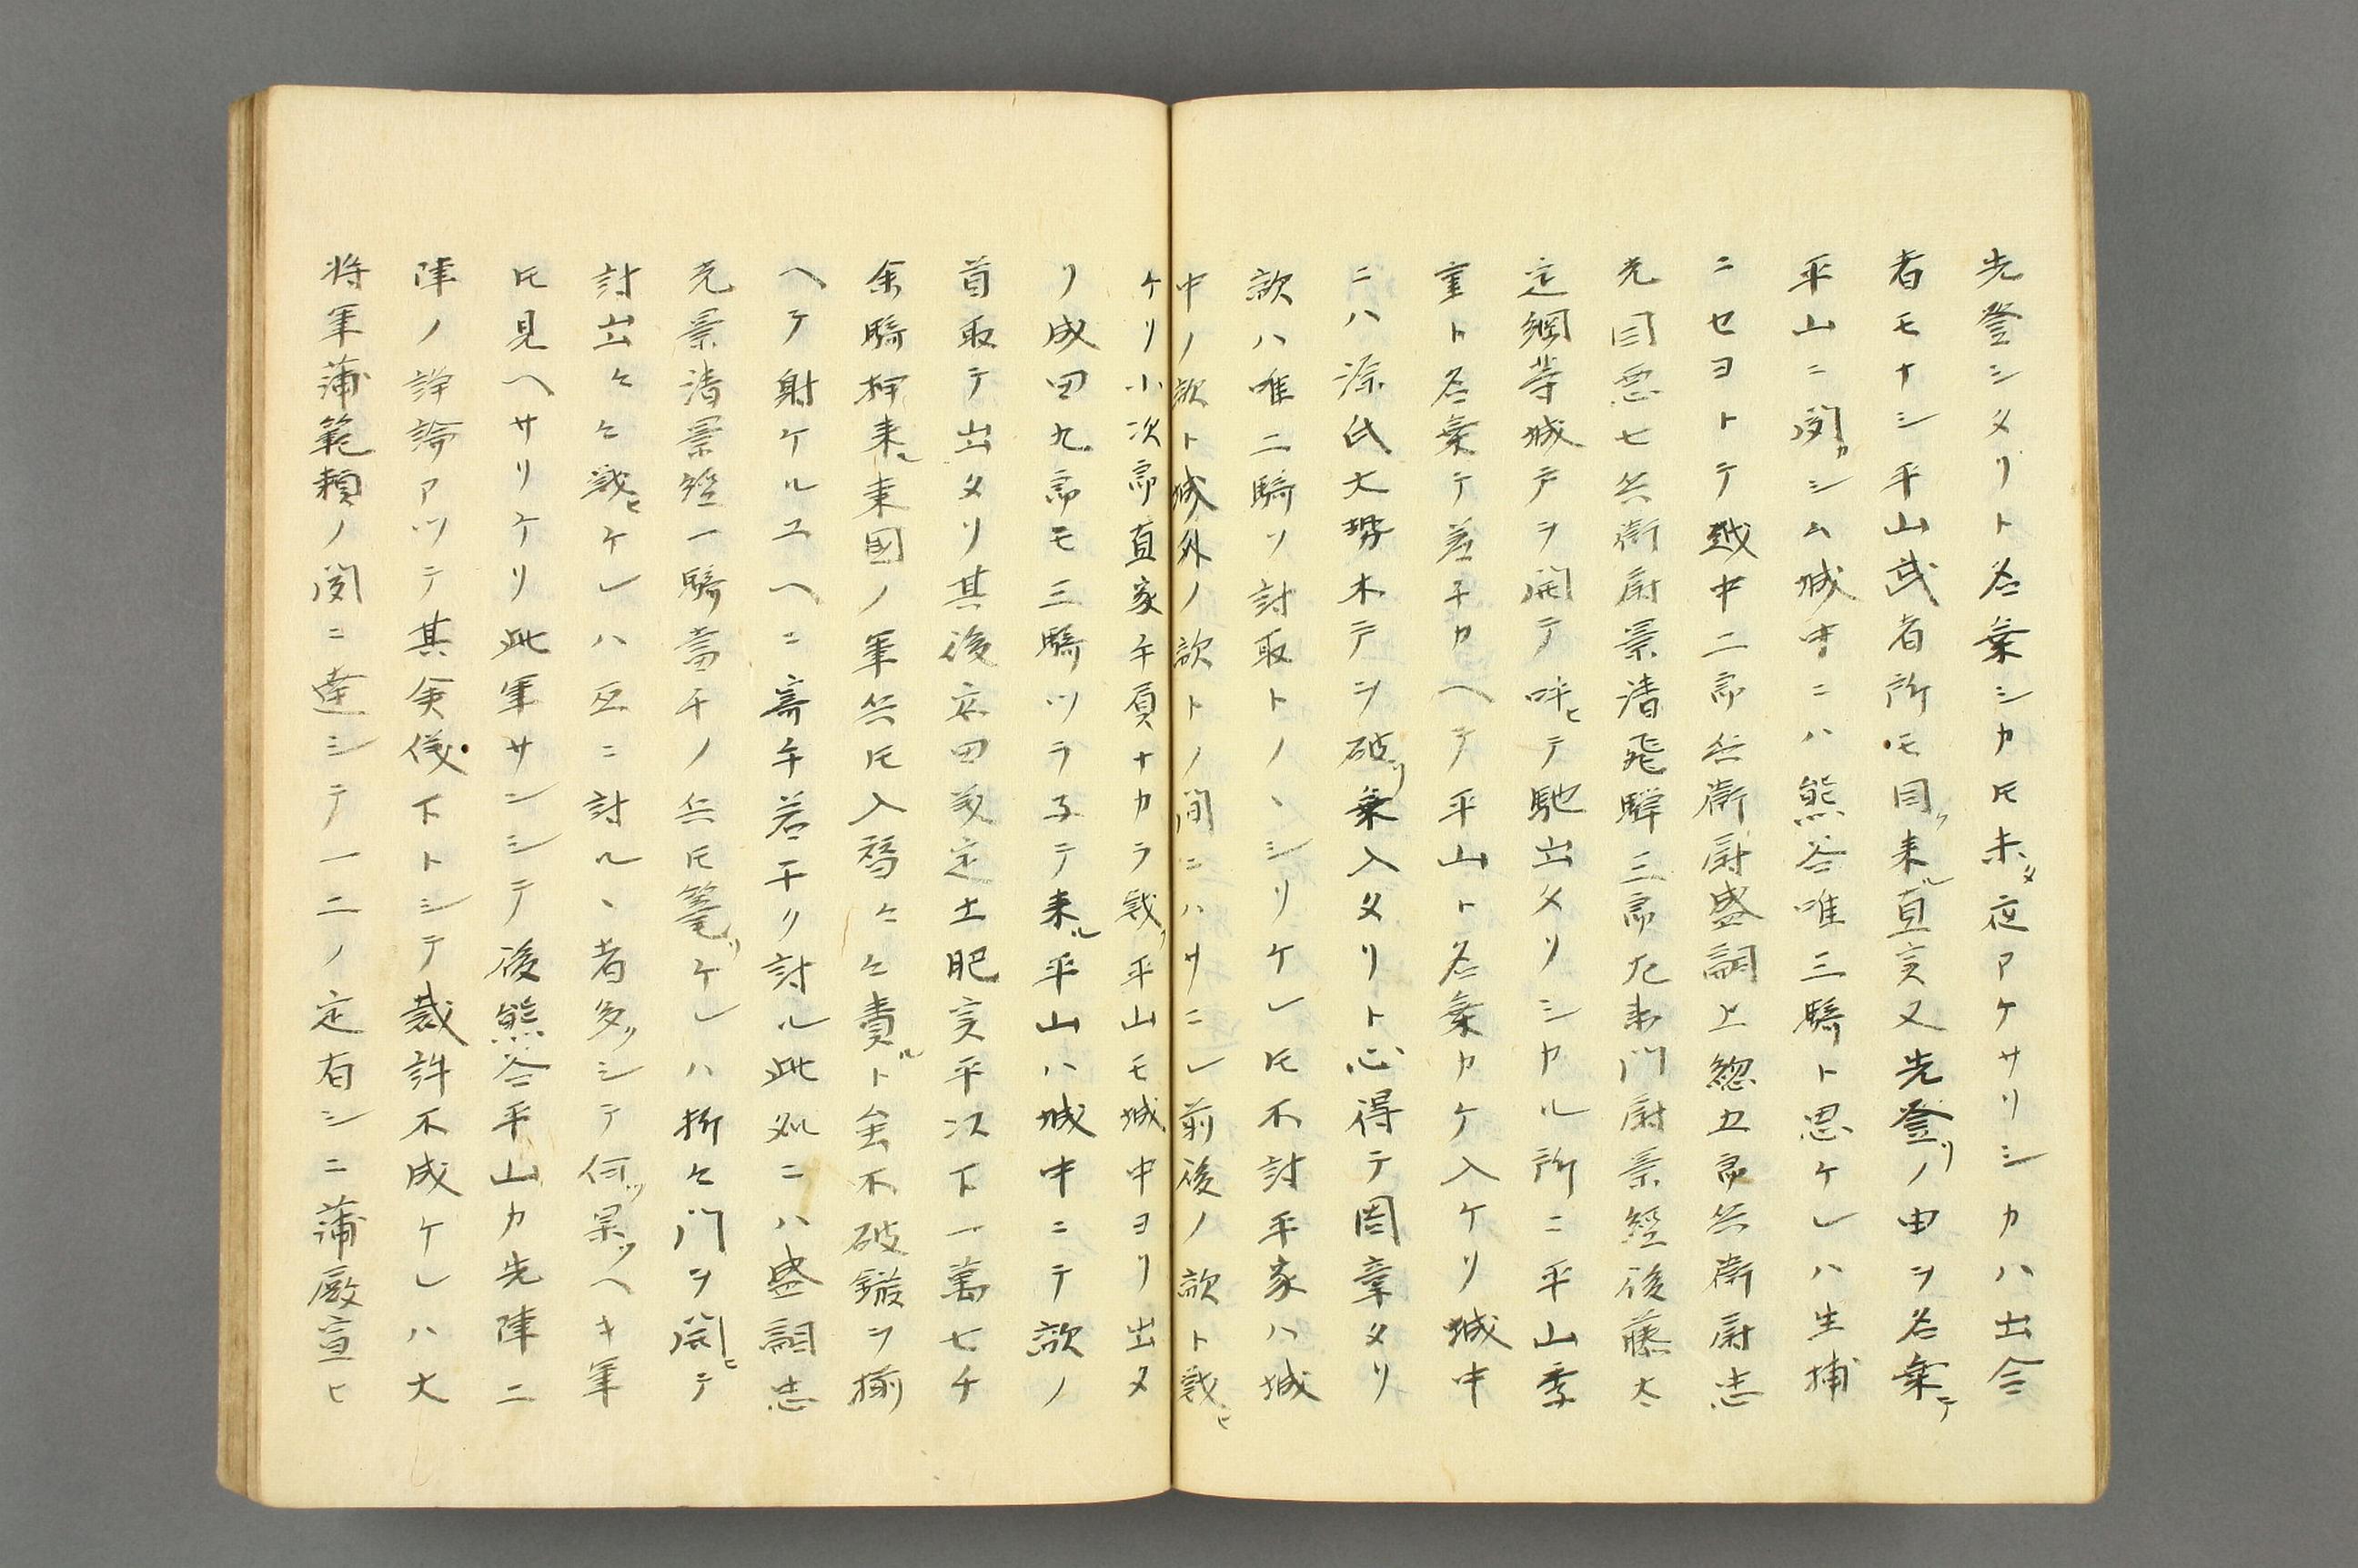 先登シタリト名乗シカ𪜈未タ夜アケサリシカハ出合
者モナシ平山武者所モ同ク来ル直実又先登リノ由ヲ名乗テ
平山ニ聞カシム城中ニハ熊谷唯三騎ト思ケレハ生捕
ニセヨトテ越中二郎兵衛尉盛嗣上総五郎兵衛尉忠
光同悪七兵衛尉景清飛騨三郎左衛門尉景経後藤太
定綱等城戸ヲ開テ呼ヒテ馳出タリシカル所ニ平山季
重ト名乗テ差チカヘテ平山ト名乗カケ入ケリ城中
ニハ源氏大勢木戸ヲ破リ乗入タリト心得テ周章タリ
敵ハ唯二騎ソ討取トノヽシリケレ𪜈不討平家ハ城
中ノ敵ト城外ノ敵トノ間ニハサニレ前後ノ敵ト戦ヒ
ケリ小次郎直家手負ナカラ戦フ平山モ城中ヨリ出タ
リ成田九郎モ三騎ツラ子テ来ル平山ハ城中ニテ敵ノ
首取テ出タリ其後安田義定土肥実平以下一萬七千
余騎押来ル東国ノ軍兵𪜈入替々々責ルト云不破鏃ヲ揃
ヘテ射ケルユヘニ寄手若干リ討ル此処ニハ盛嗣忠
光景清景経一騎當千ノ兵𪜈篭リケレハ折々門ヲ開ヒテ
討出々々戦ヒケレハ互ニ討ルヽ者多リシテ何ツ果ツヘキ軍
𪜈見ヘサリケリ此軍サンシテ後熊谷平山カ先陣二
陣ノ諍論アツテ其実儀下トシテ裁許不成ケレハ大
将軍蒲範頼ノ聞ニ達シテ一二ノ定有シニ蒲殿宣ヒ